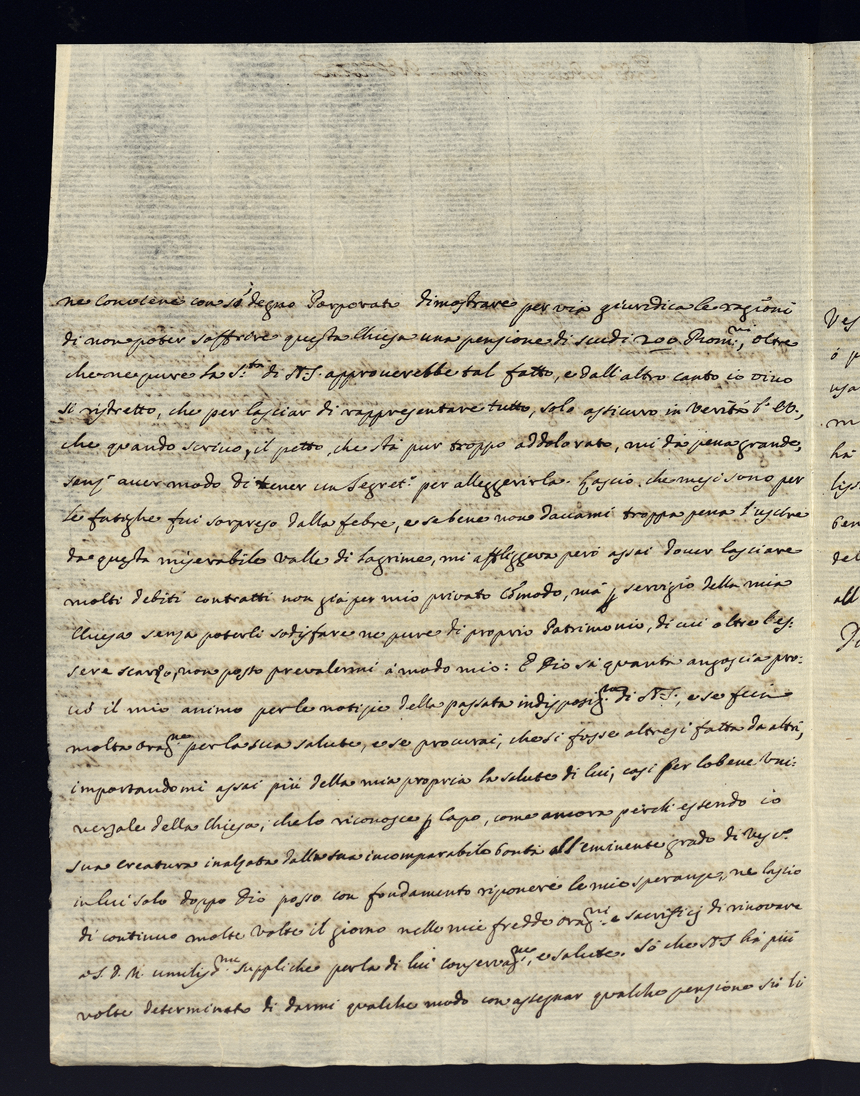 ne conviene con sì degno Porporato dimostrare per via giuridica le ragioni
di non poter soffrire questa Chiesa una pensione di scudi 200 Rom.ni, oltre
che ne pure la S.tà di N.S. approverebbe tal fatto, e dall'altro canto io vivo
sì ristretto, che per lasciar di rappresentare tutto, solo assicuro in verità
che quando scrivo, il petto, che stà pur troppo addolorato, mi dà pena grande,
senz' aver modo di tener un Segret.o per alleggerirla. Lascio, che mesi sono per
le fatighe fui sorpreso dalla febre, e sebene non davami troppa pena l'uscire
da questa miserabile valle di lagrime, mi affliggeva però assai dover lasciare
molti debiti contratti non già per mio privato cômodo, mà p servigio della mia
Chiesa senza poterli sodisfare ne pure di proprio Patrimonio, di cui oltre l'es:
sere scarzo, non posso prevalermi à modo mio: E Dio sà quanta angoscia pro:
vò il mio animo per le notizie della passata indisposiz.ne di N.S., e se feci
molta oraz.ne per la sua salute, e se procurai, che si fusse altresì fatta da altri,
importandomi assai più della mia propria la salute di lui, così per lo bene Uni:
versale della Chiesa, che lo riconosce p Capo, come ancora perche essendo io
sua creatura inalzata dalla sua incomparabile bontà all'eminente grado di Vesc.o
in lui solo doppo Dio posso con fondamento riponere le mie speranze, ne lascio
di continuo molte volte il giorno nelle mie fredde oraz.ni e sacrificij di rinovare
a S. D. M. umiliss.me suppliche per la di lui conservaz.ne, e salute. Sò che N.S. hà più
volte determinato di darmi qualche modo con assegnar qualche pensione sù li